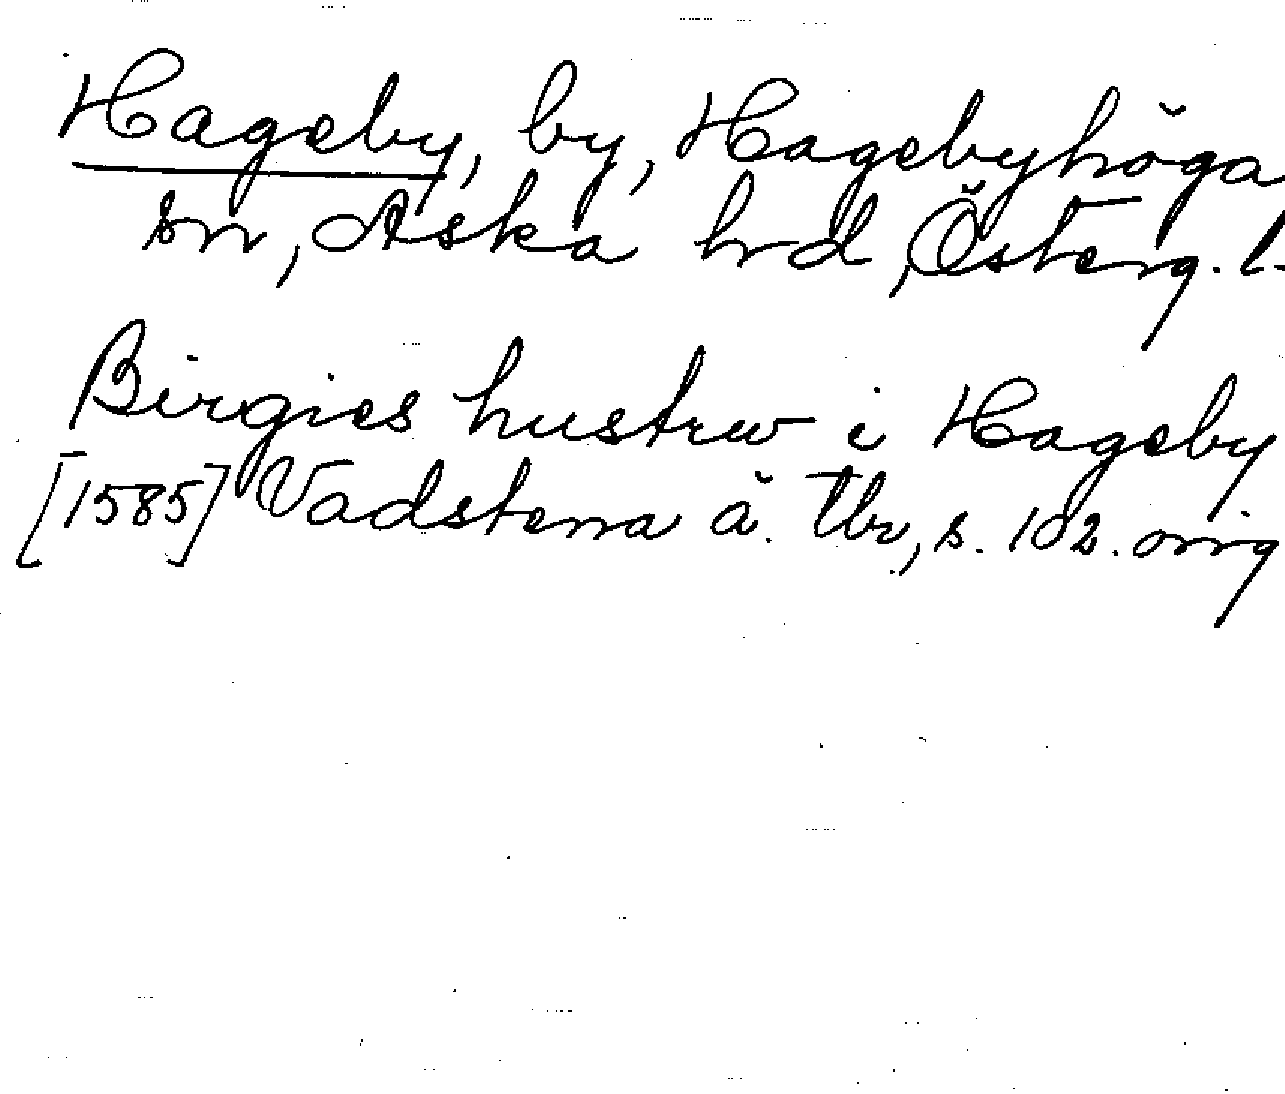 Hageby, by, Hagebyhöga
sn, Aska hrd, Österg. l.
Birgies hustrw i Hageby
[1585] Vadstena ä. tbr, s. 102. orig